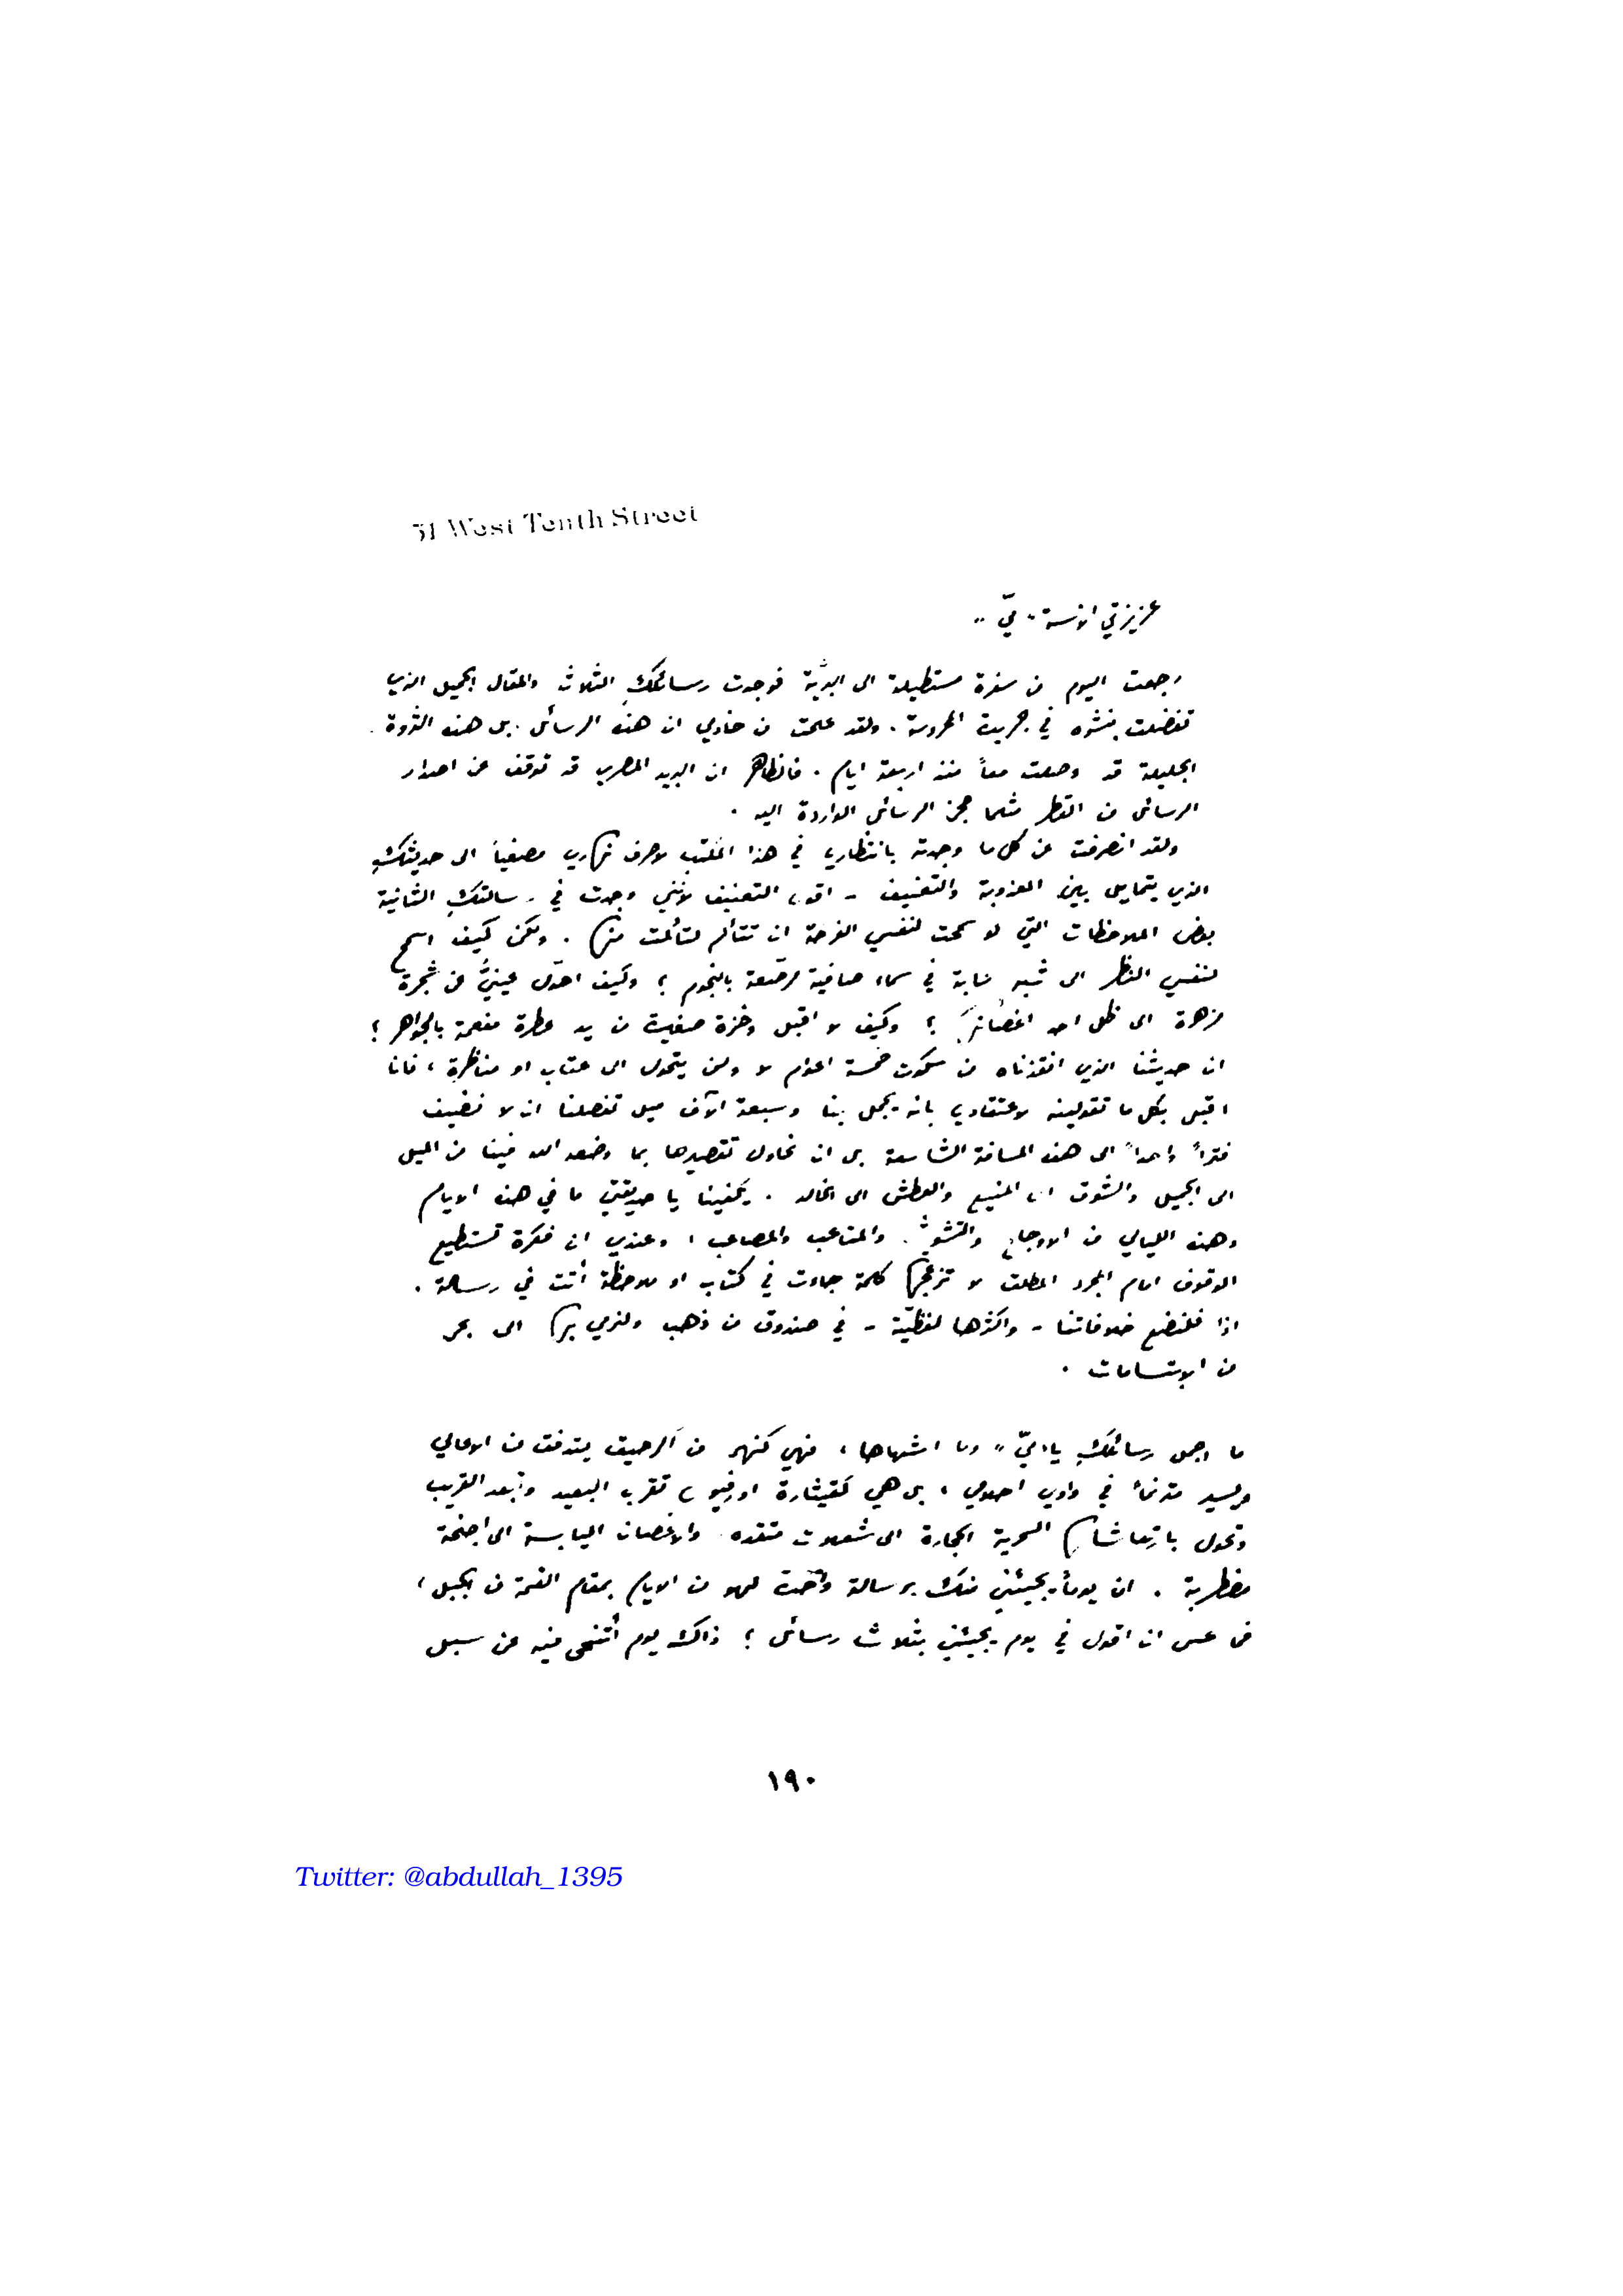 51 West Tenth Street
عزيزتي الآنسة "ميّ"
رجعت اليوم من سفرة مستطيلة الى البريّة فوجدت رسائلكِ الثلاث والمقال الجميل الذي
تفضلت بنشره في جريدة المحروسة. ولقد علمت من خادمي ان هذه الرسائل بل هذه الثروة
الجليلة قد وصلت معاً منذ اربعة ايام. فالظاهر ان البريد المصري قد توقف عن اصدار
الرسائل من القطر مثلما حجز الرسائل الواردة اليه.
ولقد انصرفت عن كل ما وجدته بانتظاري في هذا المكتب لاصرف نهاري مصغياً الى حديثكِ
الذي يتمايل بين العذوبة والتعنيف - اقول التعنيف لانني وجدت في رسالتكِ الثانية
بعض الملاحظات التي لو سمحت لنفسي الفرحة ان تتألم لتألمت منها. ولكن كيف اسمح
لنفسي النظر الى شبه سحابة في سماء صافية مرصّعة بالنجوم؟ وكيف احوّل عينيّ عن شجرة
مزهرة الى ظل احد اغصانها؟ وكيف لا اقبل وخزة صغيرة من يد عطرة مفعمة بالجواهر؟
ان حديثنا الذي انقذناه من سكوت خمسة اعوام لا ولن يتحول الى عتاب او مناظرة، فانا
اقبل بكل ما تقولينه لاعتقادي بانه يجمل بنا وسبعة آلاف ميل تفصلنا ان لا نضيف
فتراً واحداً الى هذه المسافة الشاسعة بل ان نحاول تقصيرها بما وضعه الله فينا من الميل
الى الجميل والشوق الى المنبع والعطش الى الخالد. يكفينا يا صديقتي ما في هذه الايام
وهذه الليالي من الاوجاع والتشويش والمتاعب والمصاعب، وعندي ان فكرة تستطيع
الوقوف امام المجرد المطلق لا تزعجها كلمة جاءت في كتاب او ملاحظة أتت في رسالة.
اذا فلنضع خلافاتنا - واكثرها لفظيّة - في صندوق من ذهب ولنرمي بها الى بحر
من الابتسامات.
ما اجمل رسائلكِ يا "ميّ" وما اشهاها، فهي كنهر من الرحيق يتدفق من الاعالي
ويسير مترنماً في وادي احلامي، بل هي كقيثارة اورفيوس تقرب البعيد وتبعد القريب
وتحول بارتعاشاتها السحرية الحجارة الى شعلات متقدة والاغصان اليابسة الى اجنحة
مضطربة. ان يوماً يجيئني منك برسالة واحدة لهو من الايام بمقام القمة من الجبل،
فما عسى ان اقول في يوم يجيئني بثلاث رسائل؟ ذاك يوم أتنحى فيه عن سبل
١٩٠
Twitter: @abdullah_1395